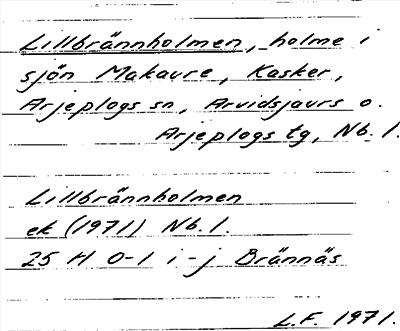 Lillbrännholmen, holme i
sjön Makaure, Kasker,
Arjeplogs sn, Arvidsjaurs o.
Arjeplogs tg, Nb. l.
Lillbrännholmen
ek (1971) Nb. l.
25 H 0-1 i-j Brännäs
L.F. 1971.